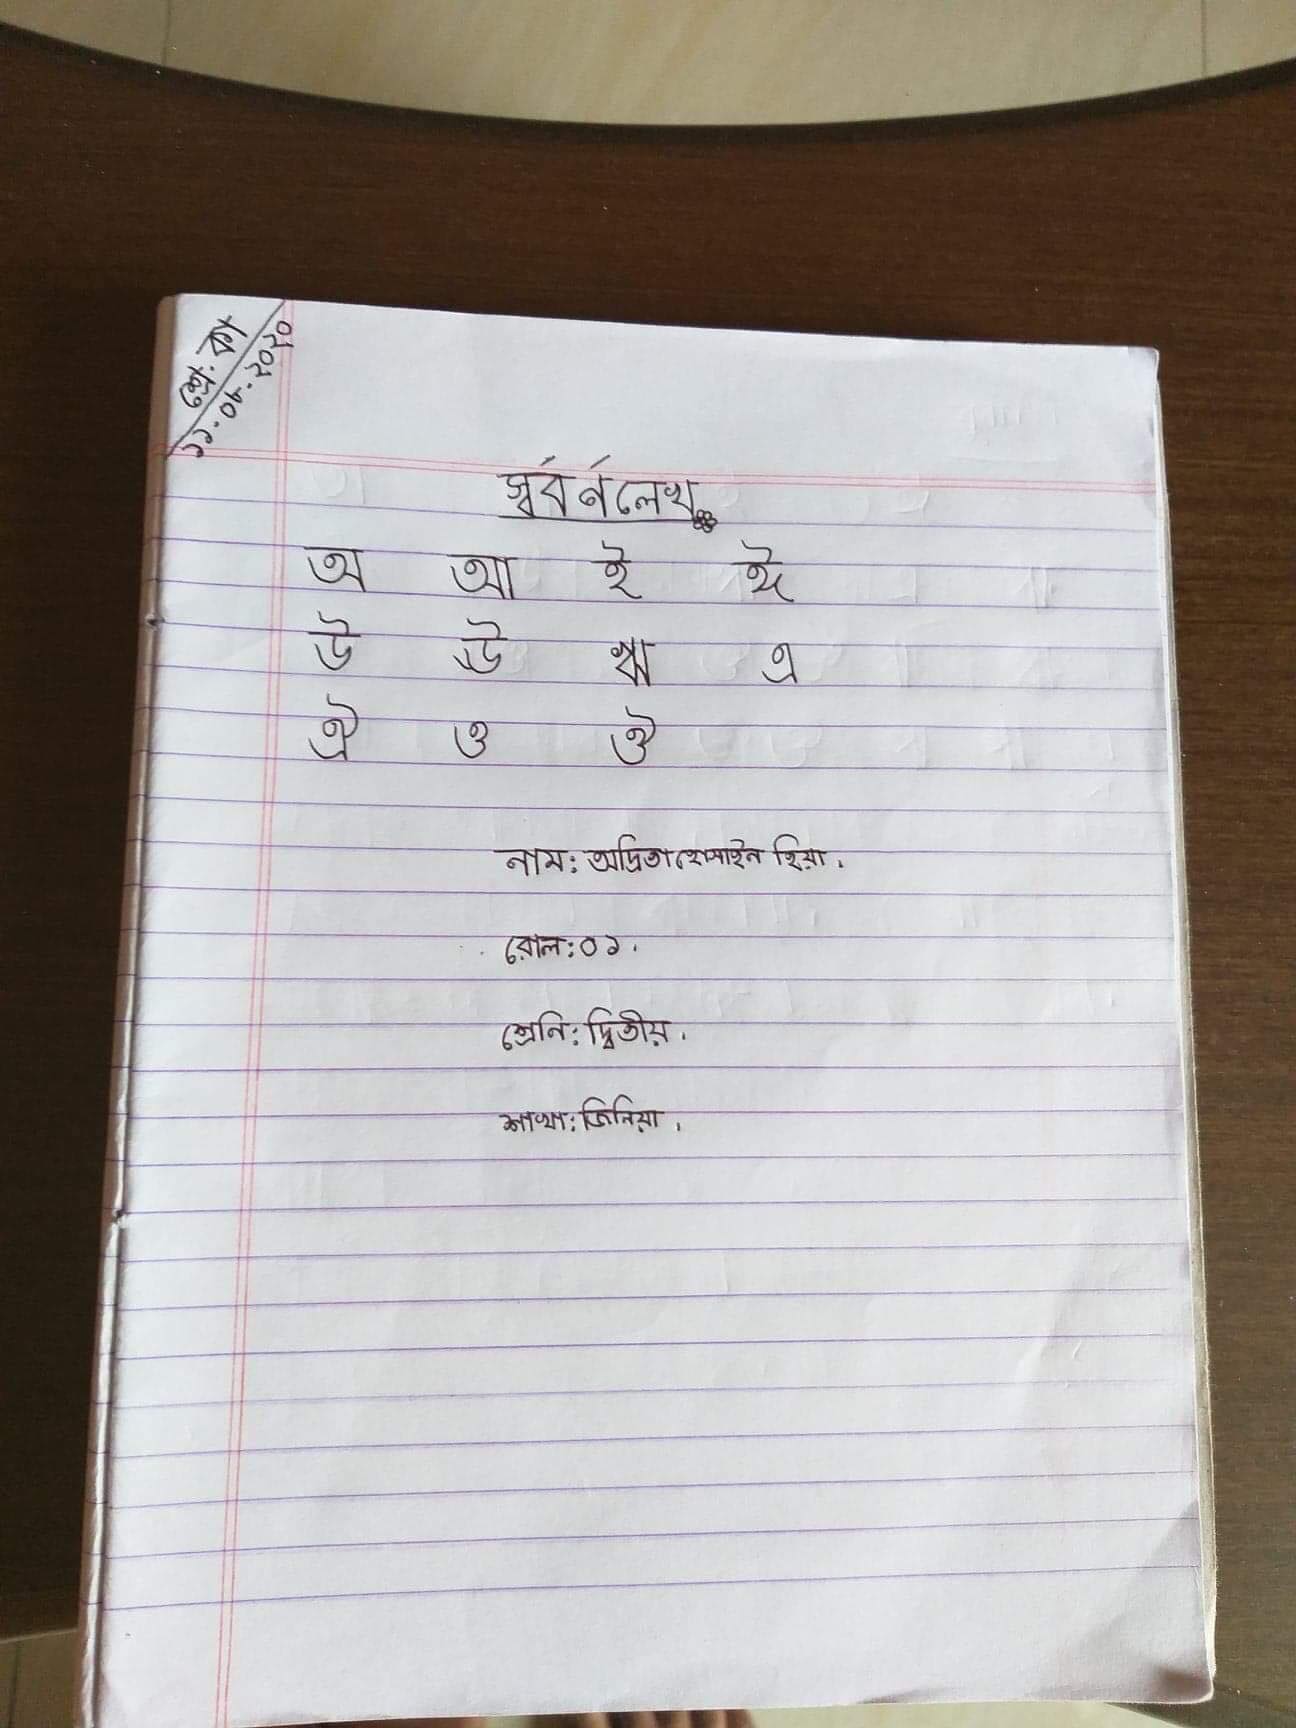 শ্রে. কা
১১.০৮.২০২০
স্বর্বর্নলেখ
অ আ ই ঈ
উ ঊ ঋ এ
ঐ ও ঔ
নাম: অদ্রিতা হোসাইন হিয়া.
রোল: ০১.
শ্রেনি: দ্বিতীয়.
শাখা: জিনিয়া.